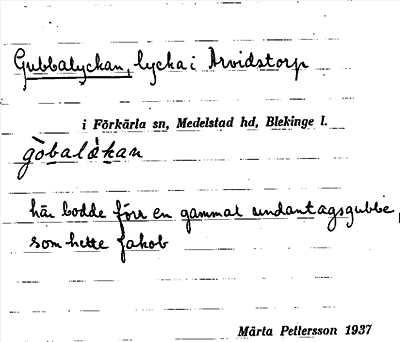 Gubbalyckan, lycka i Arvidstorp
i Förkärla sn, Medelstad hd, Blekinge l.
gòbalàkan
här bodde förr en gammal undantagsgubbe,
som hette Jakob
Märta Pettersson 1937